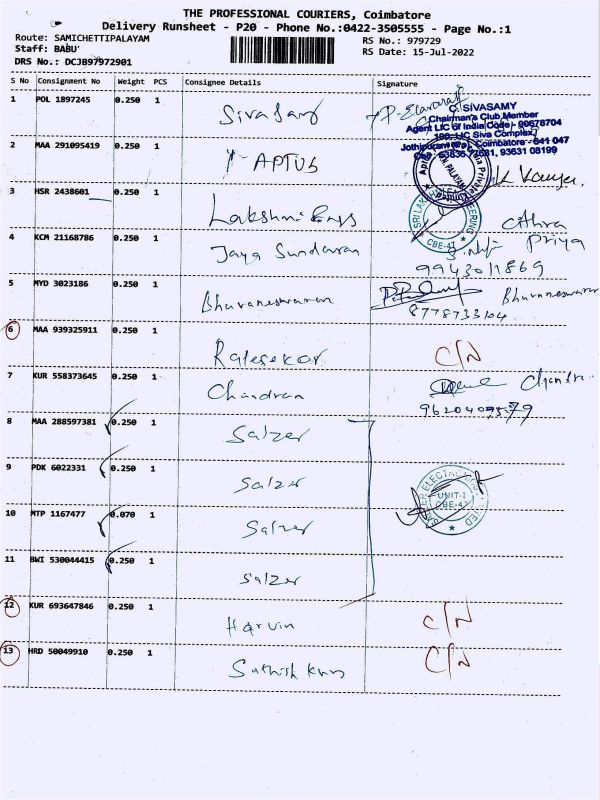 THE PROFESSIONAL COURIERS, Coimbatore
Delivery Runsheet - P20 - Phone No.:0422-3505555 - Page No.:1
Route: SAMICHETTIPALAYAM
RS No.: 979729
Staff: BABU
RS Date: 15-Jul-2022
DRS No.: DCJB97972901
S No Consignment No Weight PCS Consignee Details Signature
1 POL 1897245 0.250 1 Sivasamy
C. SIVASAMY
Chairman's Club Member
Agent LIC of India Code:- 00678704
LIC Siva Complex,
Coimbatore - 641 047
93631 08199
2 MAA 291095419 0.250 1 APTUS
3 HSR 2438601 0.250 1 Lakshmi Engg
SRI LAK
CBE-47
4 KCM 21168786 0.250 1 Jaya Sundaram
Priya
9943011869
5 MYD 3023186 0.250 1 Bhuvaneswaran Bhuvaneswaran
8778733104
6 MAA 939325911 0.250 1 Rajesekar C/N
7 KUR 558373645 0.250 1 Chandran
8 MAA 288597381 0.250 1 Salzer
9 PDK 6022331 0.250 1 Salzer
UNIT-I
CBE-47
10 MTP 1167477 0.070 1 Salzer
11 BWI 530044415 0.250 1 Salzer
12 KUR 693647846 0.250 1 Harvin C/N
13 HRD 50049910 0.250 1 C/N